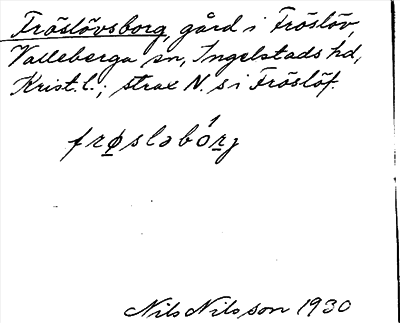 Fröslövsborg, gård i Fröslöv,
Valleberga sn, Ingelstads hd,
Krist. l.; strax N. s i Fröslöf.
frøsləbórj
Nils Nilsson 1930